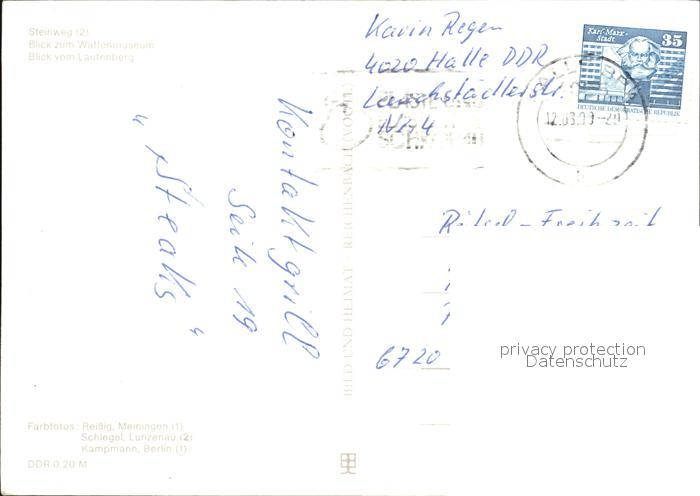 Steinweg (2)
Blick zum Waffenmuseum
Blick vom Lautenberg
Karin Regen
4020 Halle DDR
Lauchstädterstr.
Nr. 4
Karl-Marx-
Stadt
35
DEUTSCHE DEMOKRATISCHE REPUBLIK
Kontaktgrill
Seite 19
"Steaks"
BILD UND HEIMAT · REICHENBACH (VOGTL)
Rätsel-Freizeit
6720
privacy protection
Datenschutz
Farbfotos: Reißig, Meiningen (1)
Schlegel, Lunzenau (2)
Kampmann, Berlin (1)
DDR 0,20 M